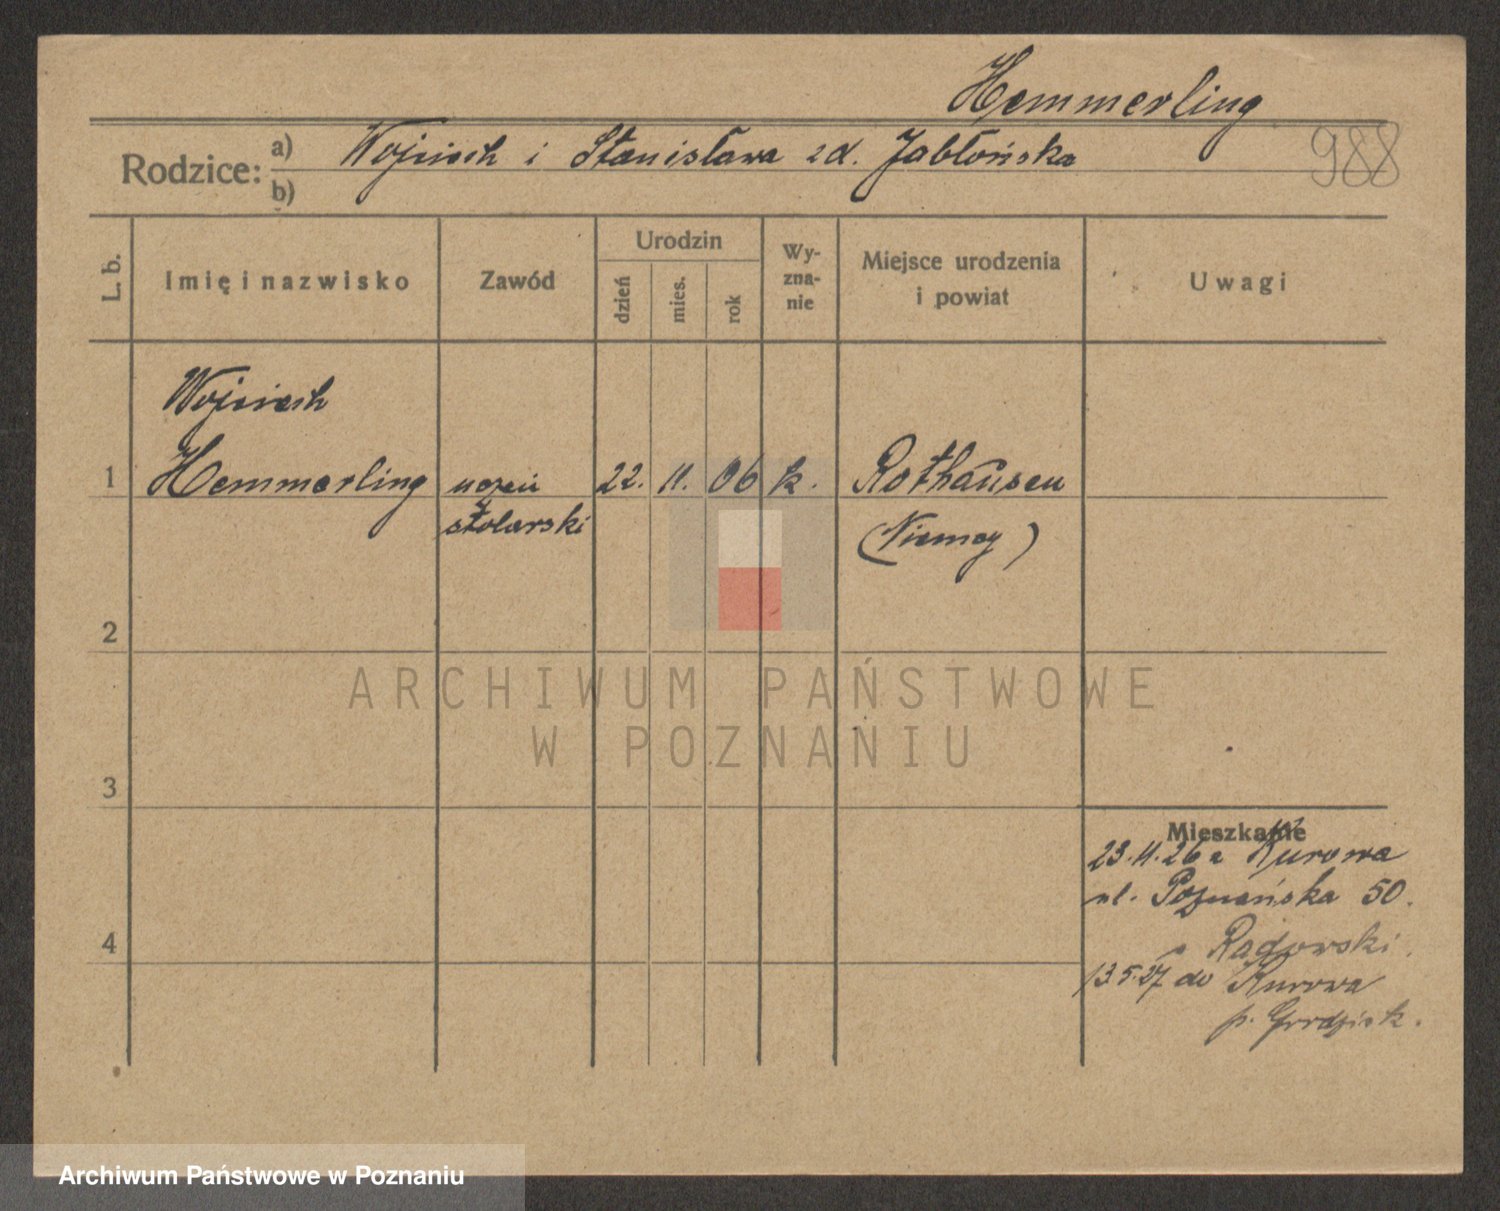 Hemmerling
Rodzice: a) Wojciech i Stanisława zd. Jabłońska
b)
988
L. b.
Imię i nazwisko
Zawód
Urodzin
dzień
mies.
rok
Wy-
zna-
nie
Miejsce urodzenia
i powiat
Uwagi
Wojciech
1 Hemmerling uczeń 22. 11. 06 k. Rothausen
stolarski (Niemcy)
2
3
4
Mieszkanie
23.11.26 z Kurowa
ul. Poznańska 50.
Radowski.
13.5.27 do Kurowa
p. Grodzisk.
ARCHIWUM PAŃSTWOWE
W POZNANIU
Archiwum Państwowe w Poznaniu